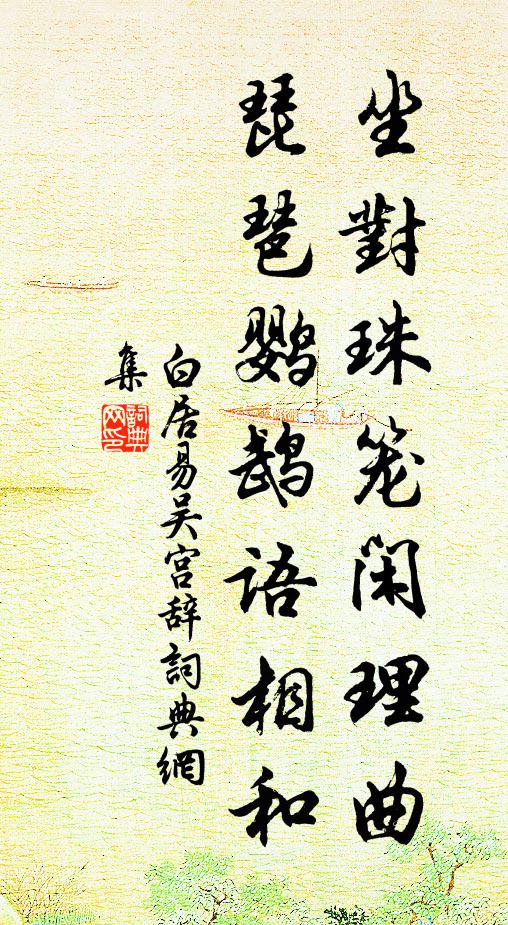 坐對珠笼闲理曲
琵琶鹦鹉语相和
白居易吴宫辞詞典網
集
詞典
网印